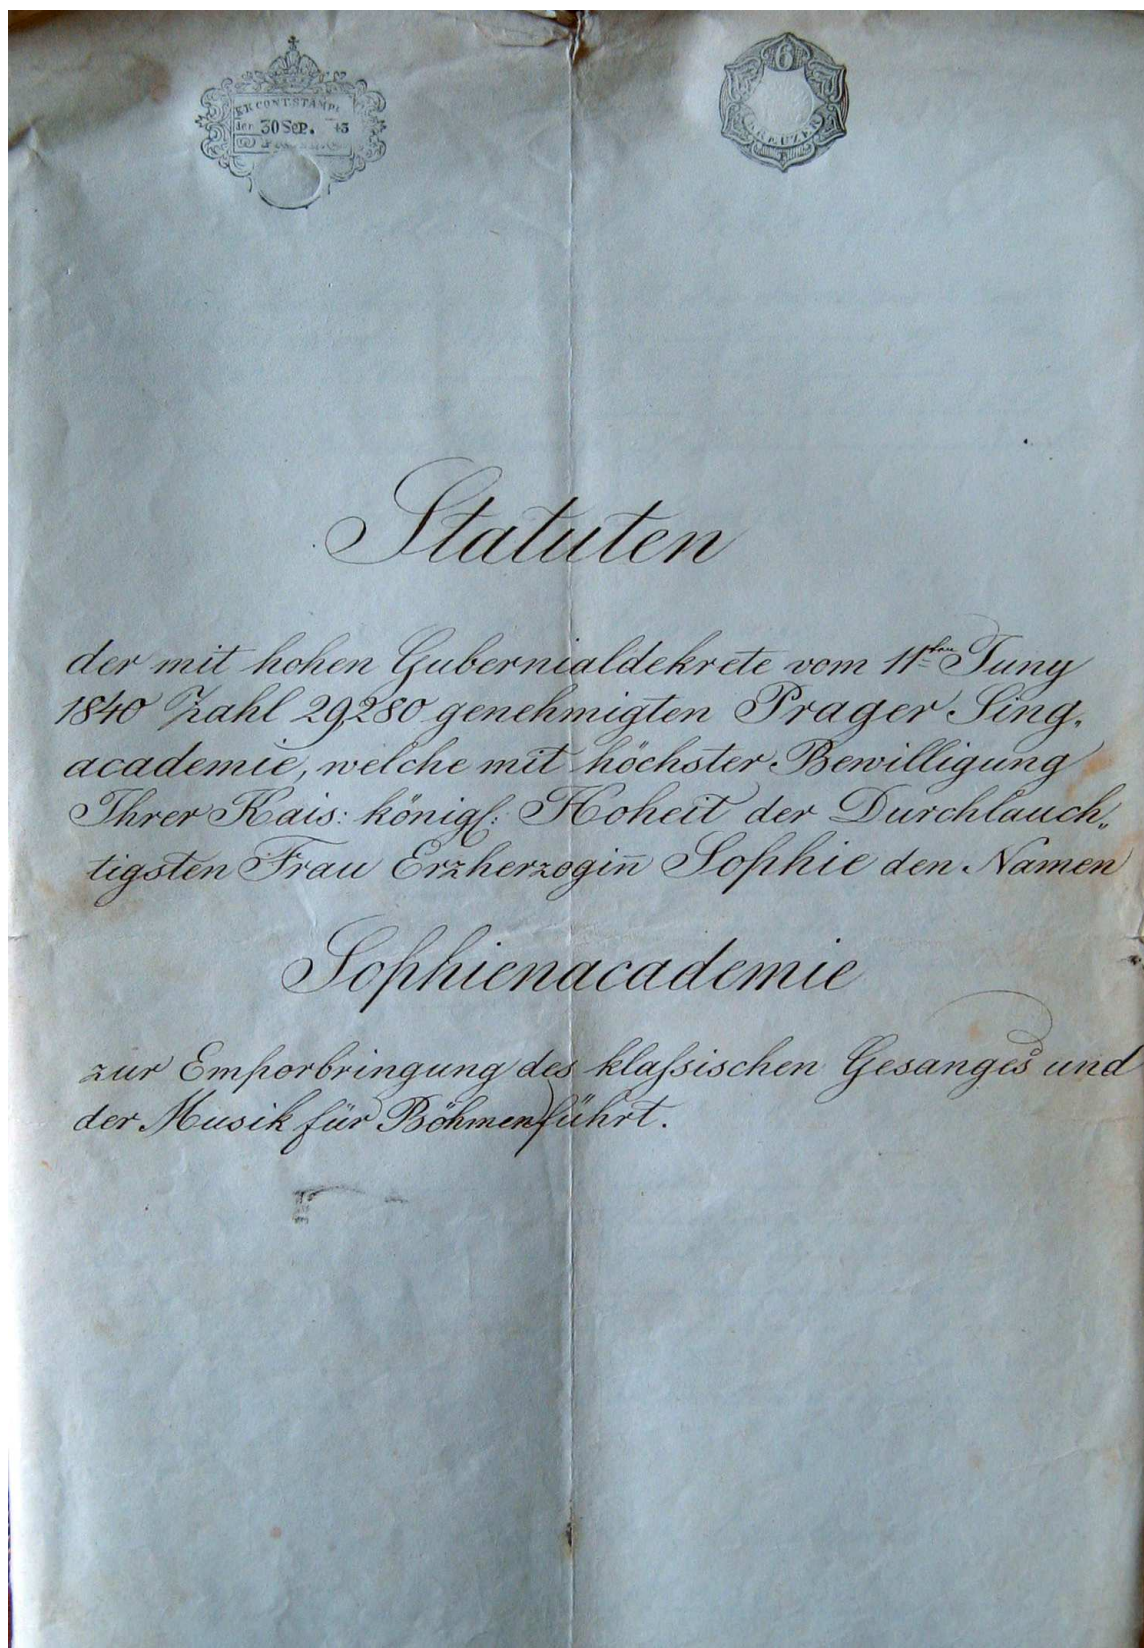 KK CONT. STAMPL
der 30 SEP. 43
6
KREUZER
Statuten
der mit hohen Gubernialdekrete vom 11ten Juny
1840 Zahl 29280 genehmigten Prager Sing„
academie, welche mit höchster Bewilligung
Ihrer Kais: königl: Hoheit der Durchlauch„
tigsten Frau Erzherzogin̄ Sophie den Namen
Sophienacademie
zur Emporbringung des klaſsischen Gesanges und
der Musik für Böhmen führt.